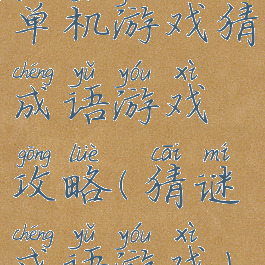 单机游戏猜
chéng yǔ yóu xì
成语游戏
gōng lüè cāi mí
攻略(猜谜
chéng yǔ yóu xì
成语游戏)